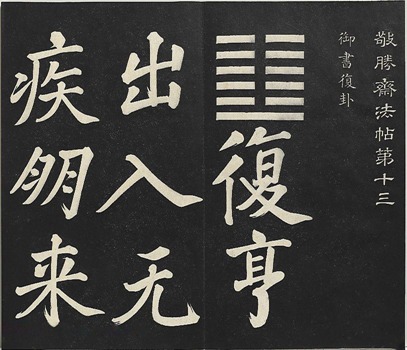 敬勝齋法帖第十三
御書復卦
䷗復亨
出入无
疾朋来